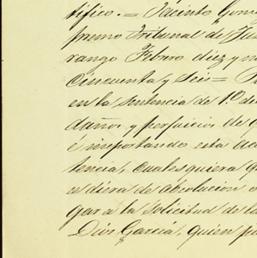 tifico. = Jacinto Gom
premo Tribunal de Jus
rango Febrero diez y n
Cincuenta y seis =
en la sentencia de 1.º de
daños y perjuicios de q
é importando esta de
tencia, cualesquiera q
adiera de absolucion o
gar a la solicitud de la
Dios Garcia, quien p